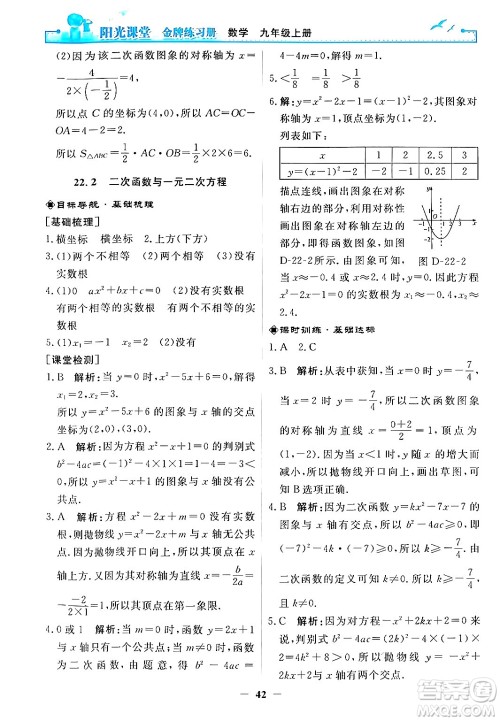 阳光课堂 金牌练习册 数学 九年级上册
(2)因为该二次函数图象的对称轴为直线 x=
-4/(2×(-1/2))=4,
所以点 C 的坐标为(4,0),所以 AC=OC-
OA=4-2=2,
所以 S△ABC=1/2×2×6=6.
22.2 二次函数与一元二次方程
目标导航·基础梳理
[基础梳理]
1.横坐标 横坐标 2.上方(下方)
3.(1)两个不相等 (2)两个相等 (3)没有
实数根
4.(1)0 (2)没有实数根
5.(1)x₁=1 x₂=2 (2)没有
[课堂检测]
1.B 解析:当 y=0 时,x²-5x+6=0,解得
x₁=2,x₂=3,
所以 y=x²-5x+6 的图象与 x 轴的交点
坐标为(2,0),(3,0).
2.A 解析:因为方程 x²-x+1=0 的判别式
b²-4ac=(-1)²-4×1×1=-3<0,
所以 y=x²-x+1 的图象与 x 轴没有公
共点.
3.A 解析:方程 x²-2x+m=0 没有实数
根,所以抛物线 y=x²-2x+m 与 x 轴没有
公共点.抛物线开口向上,所以抛物线在 x
轴上方.因为其对称轴为直线 x=-b/2a=
-(-2)/(2×1)=1,所以顶点在第一象限.
4.0 或 1 解析:当 m=0 时,函数 y=2x+1
与 x 轴只有一个公共点;当 m≠0 时,函数
为二次函数,由题意,得 b²-4ac=
4-4m=0,所以 m=1.
5.1/2 ±√2
6.解:因为 y=x²-4x+3=(x-2)²-1,其图象对
称轴为 x=2.
列表如下:
x 1 2 2.5 3
y=(x-2)²-1 0 -1 -0.25 0
描点连线,画出图象在对称
轴右边的部分,再利用对
称性,画出图象在对称轴左
边的部分,可得二次函数
y=x²-4x+3 的图象如图
D-22-2 所示.
图 D-22-2
因为其图象与 x 轴交于(1,0),(3,0),所以
方程 x²-4x+3=0 的实数根为 x₁=1,
x₂=3.
课时训练·基础达标
1.A 2.C
3.B 解析:从表中获知,当 x=0 时,y=-7/4,
当 x=2 时,y=-7/4,所以二次函数图象的
对称轴为直线 x=(0+2)/2=1,根据表中数
据,当 x<1 时,y 的值随着 x 的值增大而
减小,所以抛物线开口向上,画出草图,可
知 B 选项正确.
4.B 解析:因为二次函数 y=kx²-7x-7 的图
象与 x 轴有交点,所以判别式 b²-4ac=
(-7)²-4×k×(-7)≥0,解得 k≥-7/4.由
二次函数的定义可知 k≠0,所以 k≥-7/4
且 k≠0.
5.C 解析:因为函数 y=-x²+2kx+2 中,
判别式 b²-4ac=(2k)²-4×(-1)×2=
4k²+8>0,所以抛物线与 x 轴有两个公
共点.
42